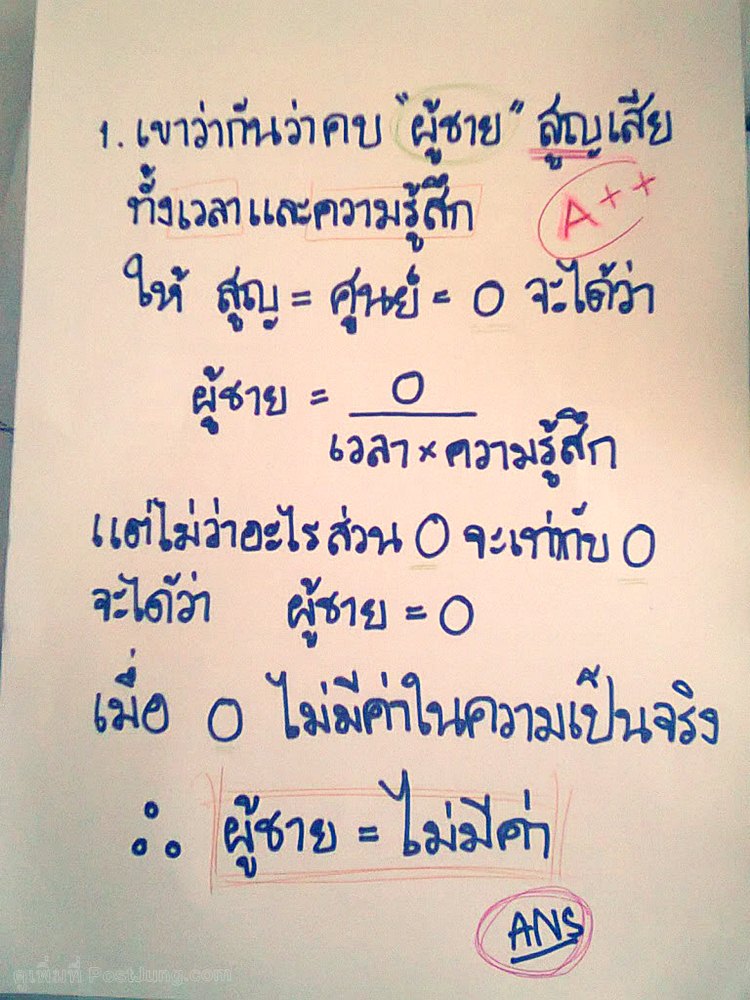 1. เขาว่ากันว่าคบ "ผู้ชาย" สูญเสีย
ทั้งเวลาและความรู้สึก
A++
ให้ สูญ = ศูนย์ = 0 จะได้ว่า
ผู้ชาย = 0
เวลา × ความรู้สึก
แต่ไม่ว่าอะไรส่วน 0 จะเท่ากับ 0
จะได้ว่า ผู้ชาย = 0
เมื่อ 0 ไม่มีค่าในความเป็นจริง
∴ ผู้ชาย = ไม่มีค่า
ANS
ดูเพิ่มที่ PostJung.com